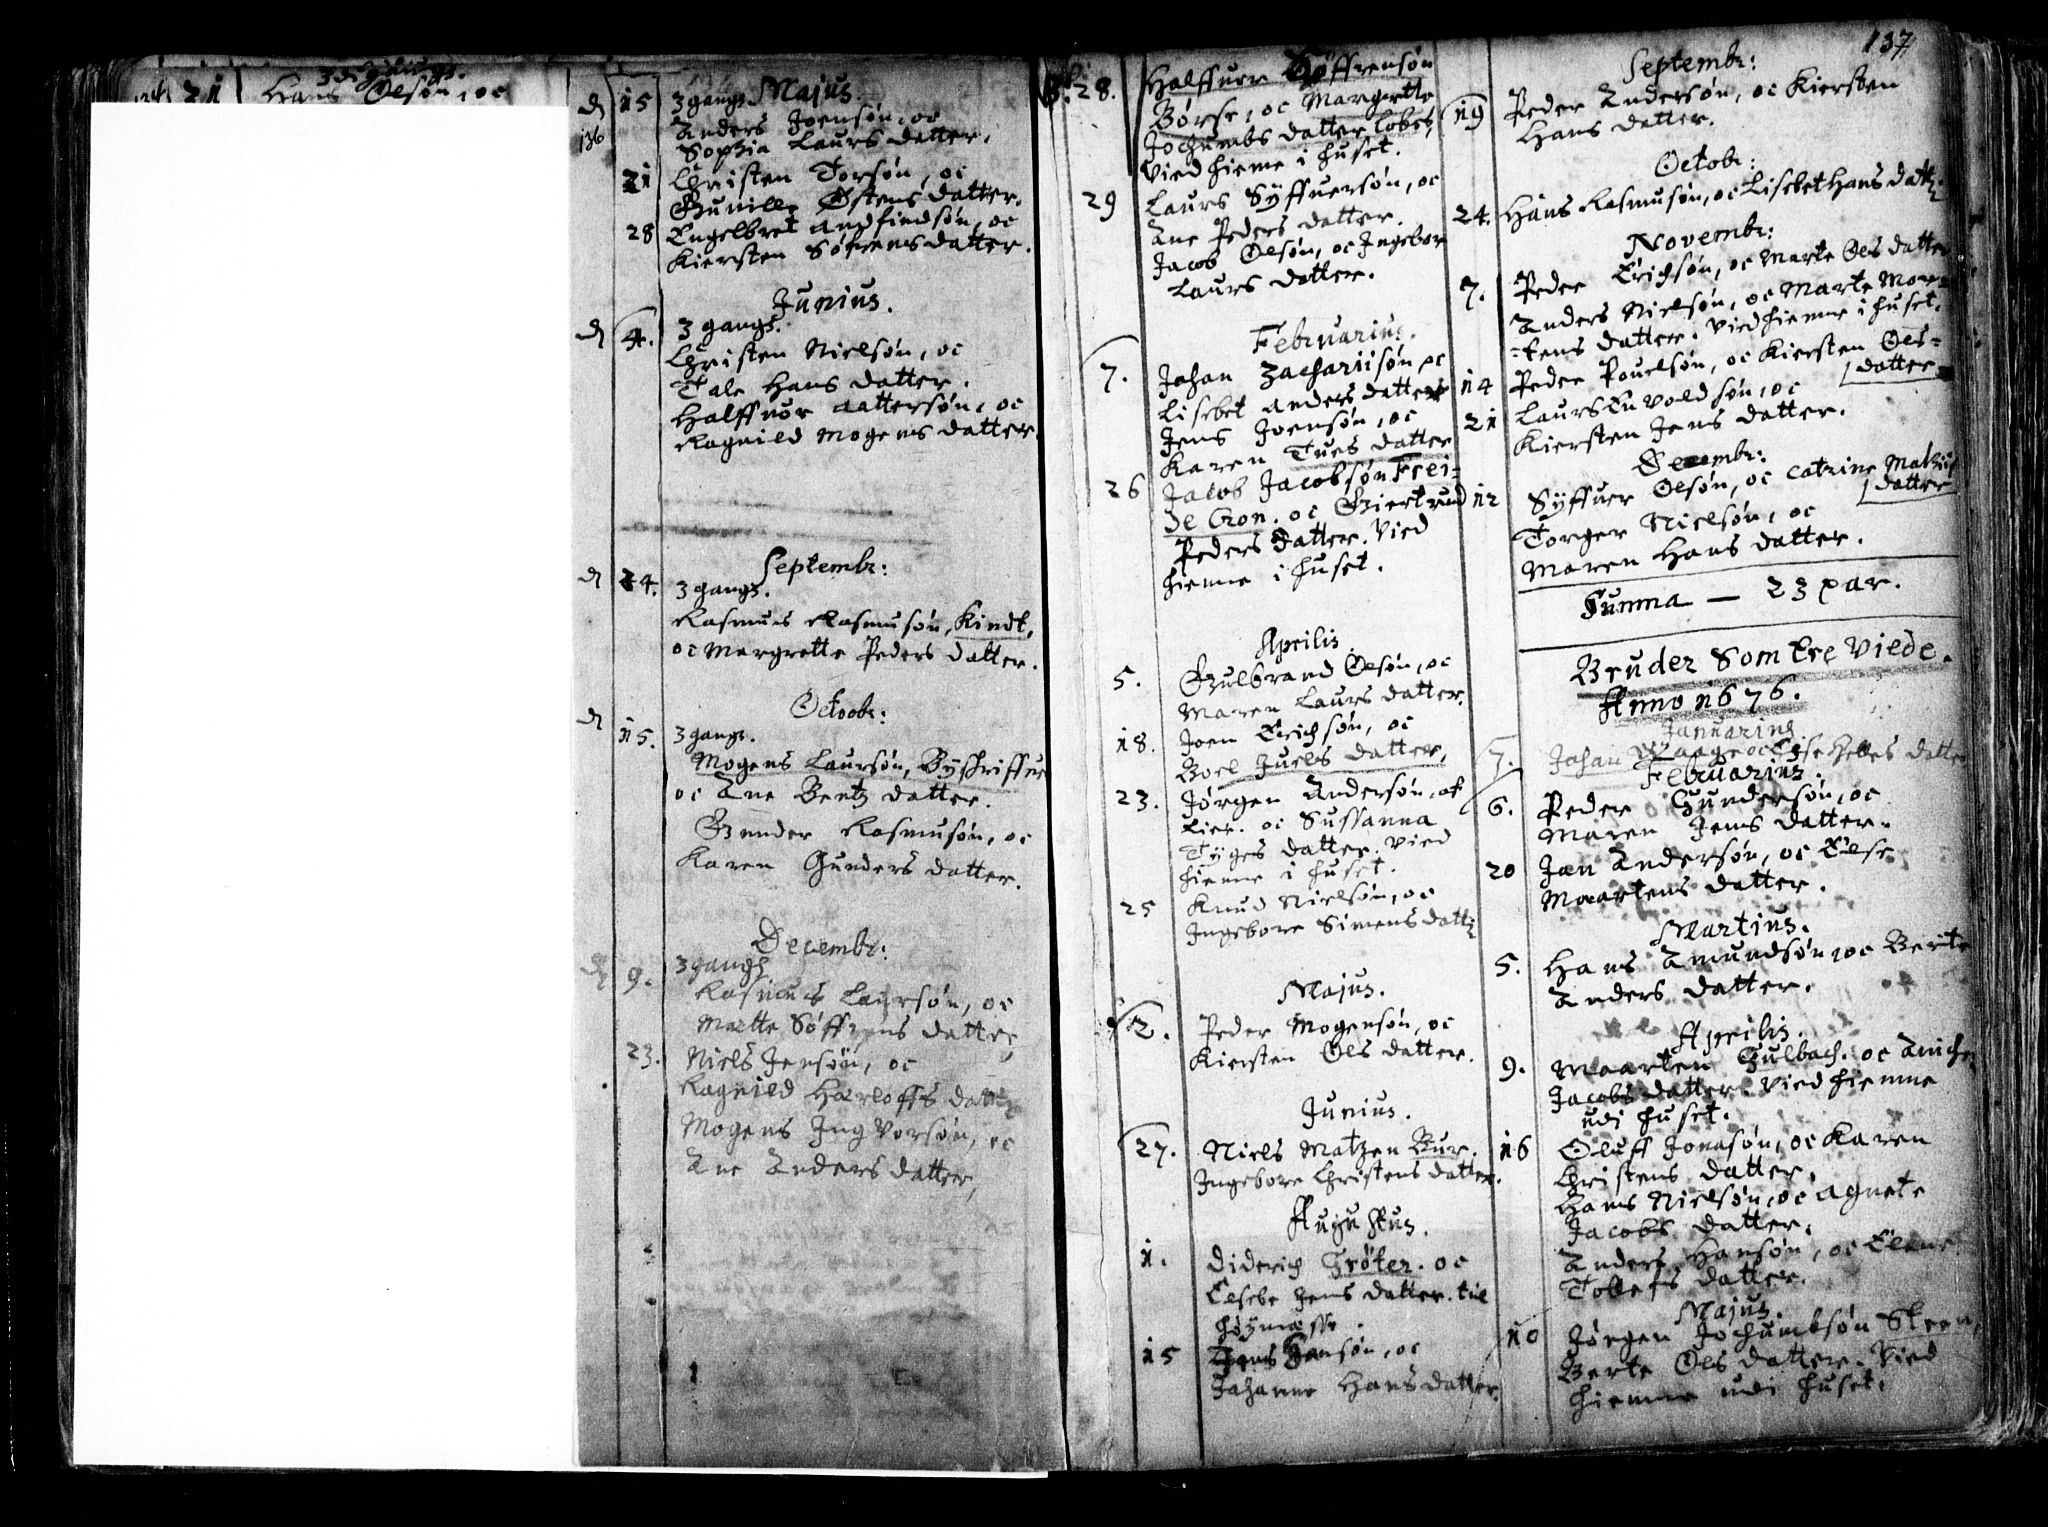 3die gang.
21 Hans Olsøn, oc
Majus.
15 3 gang.
Anders Joensøn, oc
136
Sophia Laurs datter.
21 Christen Torsøn, oc
Gunilla Østens datter.
28 Engelbret Andfindsøn, oc
Kiersten Søfrens datter.
Junius.
4. 3 gang.
Christen Nielsøn, oc
Tale Hans datter.
Halffuor aattersøn, oc
Ragnild Mogens datter.
Septembr:
24. 3 gang.
Rasmus Rasmusøn, Kindt,
oc Margrette Peders datter.
Octobr:
15. 3 gang.
Mogens Laursøn, Byschriffue
oc Ane Bentz datter.
Gunder Rasmusøn, oc
Karen Gunders datter.
Decembr:
9. 3 gang.
Rasmus Laursøn, oc
Mætte Søffrens datter,
23. Niels Jensøn, oc
Ragnild Harloffs datter
Mogens Ingvorsøn, oc
Ane Anders datter,
28. Halffuor Søffrensøn
Børse, oc Margrette
Jochumbs datter Lobes,
Vied hieme i huset.
29 Laurs Syffuersøn, oc
Ane Peders datter.
Jacob Olsøn, oc Ingebor
Laurs datter.
Februarius.
7. Johan Zachariisøn, oc
Lisebet Anders datter
Jens Joensøn, oc
Karen Tues datter
26 Jacob Jacobsøn Frei-
de Cron. oc Giertrud
Peders datter. Vied
hiemme i huset.
Aprilis
5. Gulbrand Olsøn, oc
Maren Laurs datter.
18. Joen Erichsøn, oc
Boel Juels datter,
23. Jørgen Andersøn, af
Lier. oc Sussanna
Tyges datter. Vied
hiemme i huset.
25 Knud Nielsøn, oc
Ingebore Simens datt:
Majus.
2. Peder Mogensøn, oc
Kiersten Ols datter.
Junius.
27. Niels Matzen Bur.
Ingebore Christens datter.
Augustus.
1. Diderich Trøter. oc
Elsebe Jens datter. til
høymesse.
15 Jens Hansøn, oc
Johanne Hans datter.
137
Septembr:
19 Peder Andersøn, oc Kiersten
Hans datter.
Octobr:
24. Hans Rasmusøn, oc Lisebet Hans datt:
Novembr:
7. Peder Erichsøn, oc Marte Ols datter
Anders Nielsøn, oc Marte Mor=
=tens datter. Vied hiemme i huset.
14 Peder Pouelsøn, oc Kiersten Ols=
datter
21 Laurs Envoldsøn, oc
Kiersten Jens datter.
Decembr:
12 Syffuer Olsøn, oc Catrine Mathis
datter
Torger Nielsøn, oc
Maren Hans datter.
Summa — 23 par.
Bruder Som ere Viede.
Anno 1676.
Januarius
7. Johan oc Else datter
Februarius.
6. Peder Gundersøn, oc
Maren Jens datter.
20 Jan Andersøn, oc Else
Maartens datter.
Martius.
5. Hans Amundsøn, oc Berte
Anders datter.
Aprilis.
9. Maarten Gulbach. oc Aniche
Jacobs datter. Vied hiemme
udi huset.
16 Oluff Jonasøn, oc Karen
Christens datter.
Hans Nielsøn, oc Agnete
Jacobs datter.
Anders Hansøn, oc Elene
Tollefs datter.
Majus.
10 Jørgen Jochumbsøn Steen,
Berte Ols datter. Vied
hiemme udi huset.